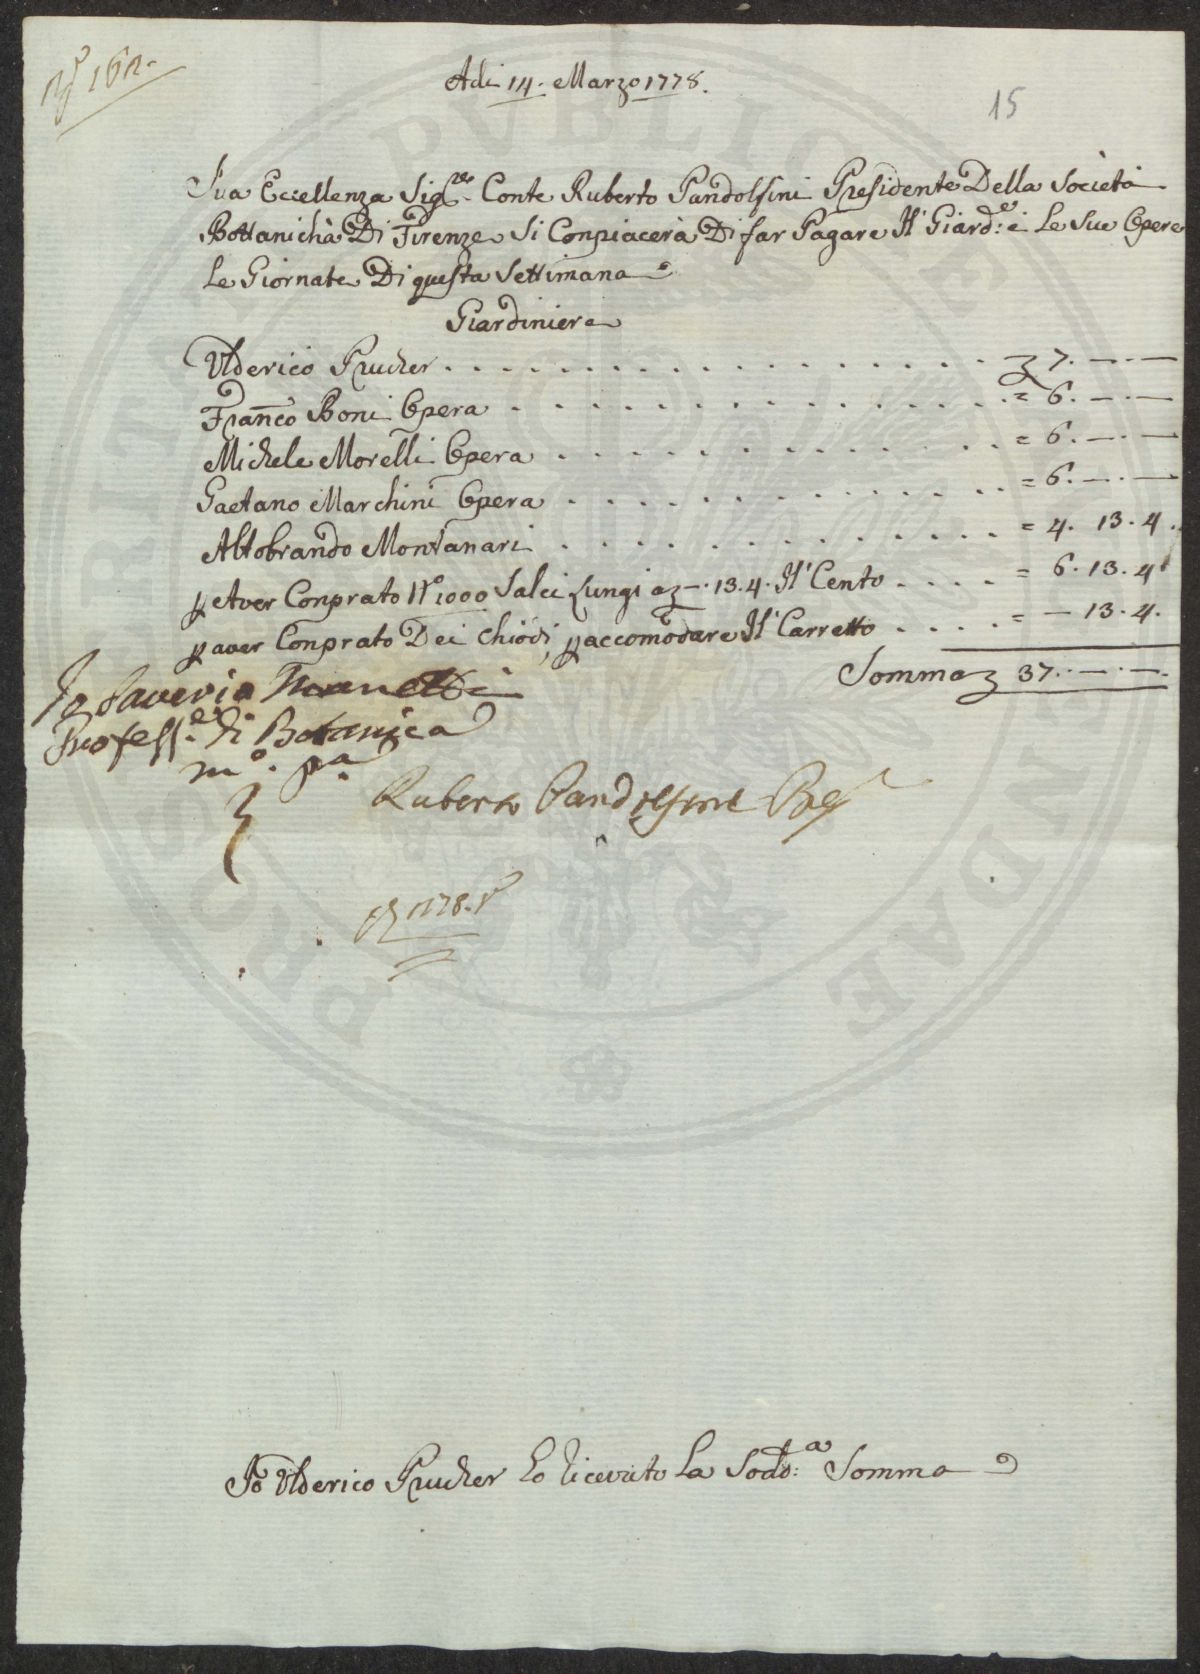 N.º 162.
Adi 14. Marzo 1778.
15
Sua Eccellenza Sig.re Conte Ruberto Pandolfini Presidente Della Società
Bottanichà Di Firenze Si Conpiacerà Di far Pagare Il Giard:e e Le Sue Opere
Le Giornate Di questa Settimana
Giardiniere
Ulderico Prucher . . . . . . . . . . . . . . . . . £ 7. — . —
Franco Boni Opera . . . . . . . . . . . . . . . = 6. — . —
Michele Morelli Opera . . . . . . . . . . . . . = 6. — . —
Gaetano Marchini Opera . . . . . . . . . . . . = 6. — . —
Altobrando Montanari . . . . . . . . . . . . . = 4. 13. 4.
p Aver Conprato N.º 1000 Salci Lungi a £ —. 13. 4. Il Cento . . . . = 6. 13. 4
p aver Conprato Dei Chiodi, p accomodare Il Carretto . . . . . = — 13. 4.
Somma £ 37. — . —.
Io Saverio Manetti
Profess.e di Botanica
m.º p.a
Ruberto Pandolfini
1778.
Io Ulderico Prucher Ho Ricevuto La Sod:a Somma
PROSPERITATI PVBLICAE